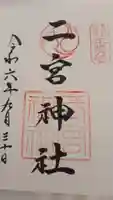 二宮神社
令和六年九月三十日